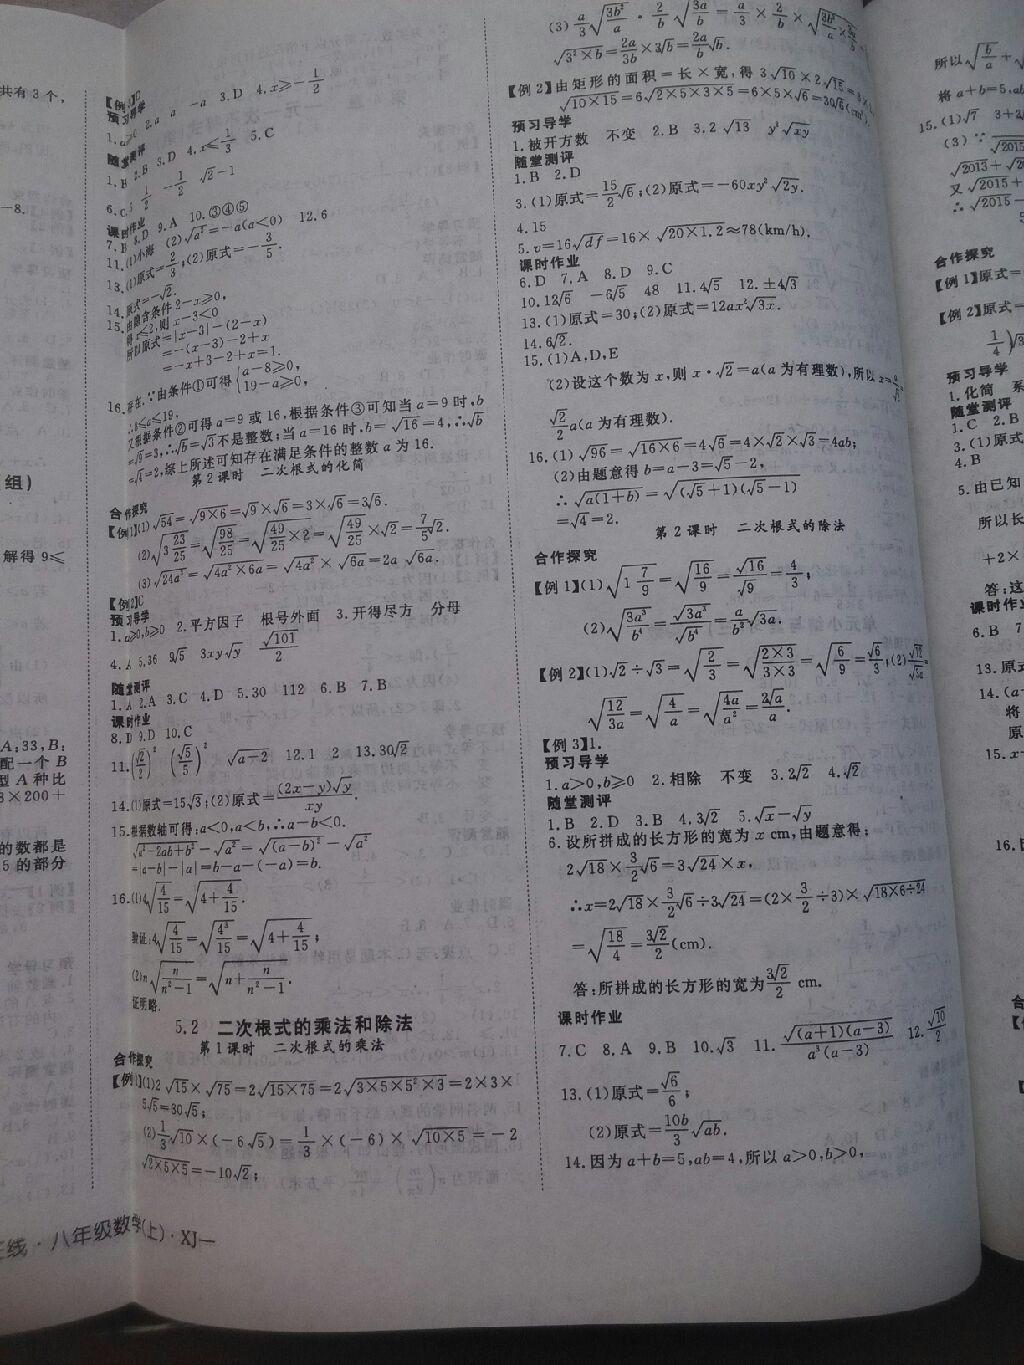 共有 3 个,
—8.
组)
解得 9≤
A;33,B;
配一个 B
型 A 种比
8×200+
的数都是
5 的部分
【例3】C
预习导学
1.a≥0 2.a a −a 3.D 4.x≥−1/2
随堂测评
1.B 2.B 3.D 4.x≤1/3 5.C
课时作业
7.B 8.D 9.A 10.③④⑤
11.(1)小海 (2)√a²=−a(a<0) 12.6
13.(1)原式=2/3;(2)原式=−3/5.
14.原式=−√2.
15.由隐含条件 2−x≥0,
得x≤2,则 x−3<0
所以原式=|x−3|−(2−x)
=−(x−3)−2+x
=−x+3−2+x=1.
16.存在.∵由条件①可得{a−8≥0, 19−a≥0,
∴8≤a≤19.
又根据条件②可得 a=9 或 16.根据条件③可知当 a=9 时,b
=√9=3,∴√b=√3不是整数;当 a=16 时,b=√16=4,∴√b
=√4=2,综上所述可知存在满足条件的整数 a 为 16.
第 2 课时 二次根式的化简
合作探究
【例1】(1)√54=√9×6=√9×√6=3×√6=3√6.
(2)√3 23/25=√98/25=√49/25×2=√49/25×√2=7/5√2.
(3)√24a³=√4a²×6a=√4a²×√6a=2a√6a.
【例2】C
预习导学
1.a≥0,b≥0 2.平方因子 根号外面 3.开得尽方 分母
4.A 5.36 9√5 3xy√y √101/2
随堂测评
1.A 2.A 3.C 4.D 5.30 112 6.B 7.B
课时作业
8.D 9.D 10.C
11.(√2/2)² (√5/5)² √a−2 12.1 2 13.30√2
14.(1)原式=15√3;(2)原式=(2x−y)√y/xy.
15.根据数轴可得:a<0,a<b,∴a−b<0.
√a²−2ab+b²−√a²=√(a−b)²−√a²
=|a−b|−|a|=b−a−(−a)=b.
16.(1)4√4/15=√4+4/15.
验证:4√4/15=√4³/15=√4+4/15;
(2)n√n/n²−1=√n+n/n²−1.
证明略.
5.2 二次根式的乘法和除法
第 1 课时 二次根式的乘法
合作探究
【例1】(1)2√15×√75=2√15×75=2√3×5×5²×3=2×3×
5√5=30√5;
(2)1/3√10×(−6√5)=1/3×(−6)×√10×5=−2
√2×5×5=−10√2;
线·八年级数学(上)·XJ—
(3)a/3√3b²/a·2/b√3a/b=a/3×2/b×
√3²×b=2a/3b×3√b=2a/b√b.
【例 2】由矩形的面积=长×宽,得 3√10×2√15=3×2×
√10×15=6√2×5×3×5=6×5×√6=30√6(cm²).
预习导学
1.被开方数 不变 2.B 3.2√13 y²√xy
随堂测评
1.B 2.D
3.(1)原式=15/2√6;(2)原式=−60xy²√2y.
4.15
5.v=16√df=16×√20×1.2≈78(km/h).
课时作业
6.D 7.A 8.D 9.C
10.12√6 −6√5 48 11.4√5 12.±4√3
13.(1)原式=30;(2)原式=12ax²√3x.
14.6√2.
15.(1)A,D,E
(2)设这个数为 x,则 x·√2=a(a 为有理数),所以 x=a/√2=
√2/2a(a 为有理数).
16.(1)√96=√16×6=4√6=4×√2×√3=4ab;
(2)由题意得 b=a−3=√5−2,
∴√a(1+b)=√(√5+1)(√5−1)
=√4=2.
第 2 课时 二次根式的除法
合作探究
【例 1】(1)√1 7/9=√16/9=√16/√9=4/3;
(2)√3a³/b⁴=√3a³/√b⁴=a/b²√3a.
【例 2】(1)√2÷√3=√2/3=√2×3/3×3=√6/9=√6/3;(2)√12/√3a=
√12/3a=√4/a=√4a/a²=2√a/a.
【例 3】1.
预习导学
1.a>0,b≥0 2.相除 不变 3.2√2 4.√2
随堂测评
1.B 2.D 3.B 4.3√2 5.√x−√y
6.设所拼成的长方形的宽为 x cm,由题意得:
2√18×3/2√6=3√24×x,
∴x=2√18×3/2√6÷3√24=(2×3/2÷3)×√18×6÷24
=√18/4=3√2/2(cm).
答:所拼成的长方形的宽为3√2/2 cm.
课时作业
7.C 8.A 9.B 10.√3 11.√(a+1)(a−3)/a³(a−3) 12.√10/2
13.(1)原式=√6/6;
(2)原式=10b/3√ab.
14.因为 a+b=5,ab=4,所以 a>0,b>0,
所以√b/a+
将 a+b=5,ab
15.(1)√7
(3)∵
又√2015+
∴√2015−
合作探究
【例 1】原式=
【例 2】原式=
预习导学
1.化简 系
随堂测评
1.C 2.B
3.(1)原式
4.B
5.由已知
所以长
+2×
答:这
课时作业
6.B 7
13.原式
14.(a−
将
原
15.x=
16.